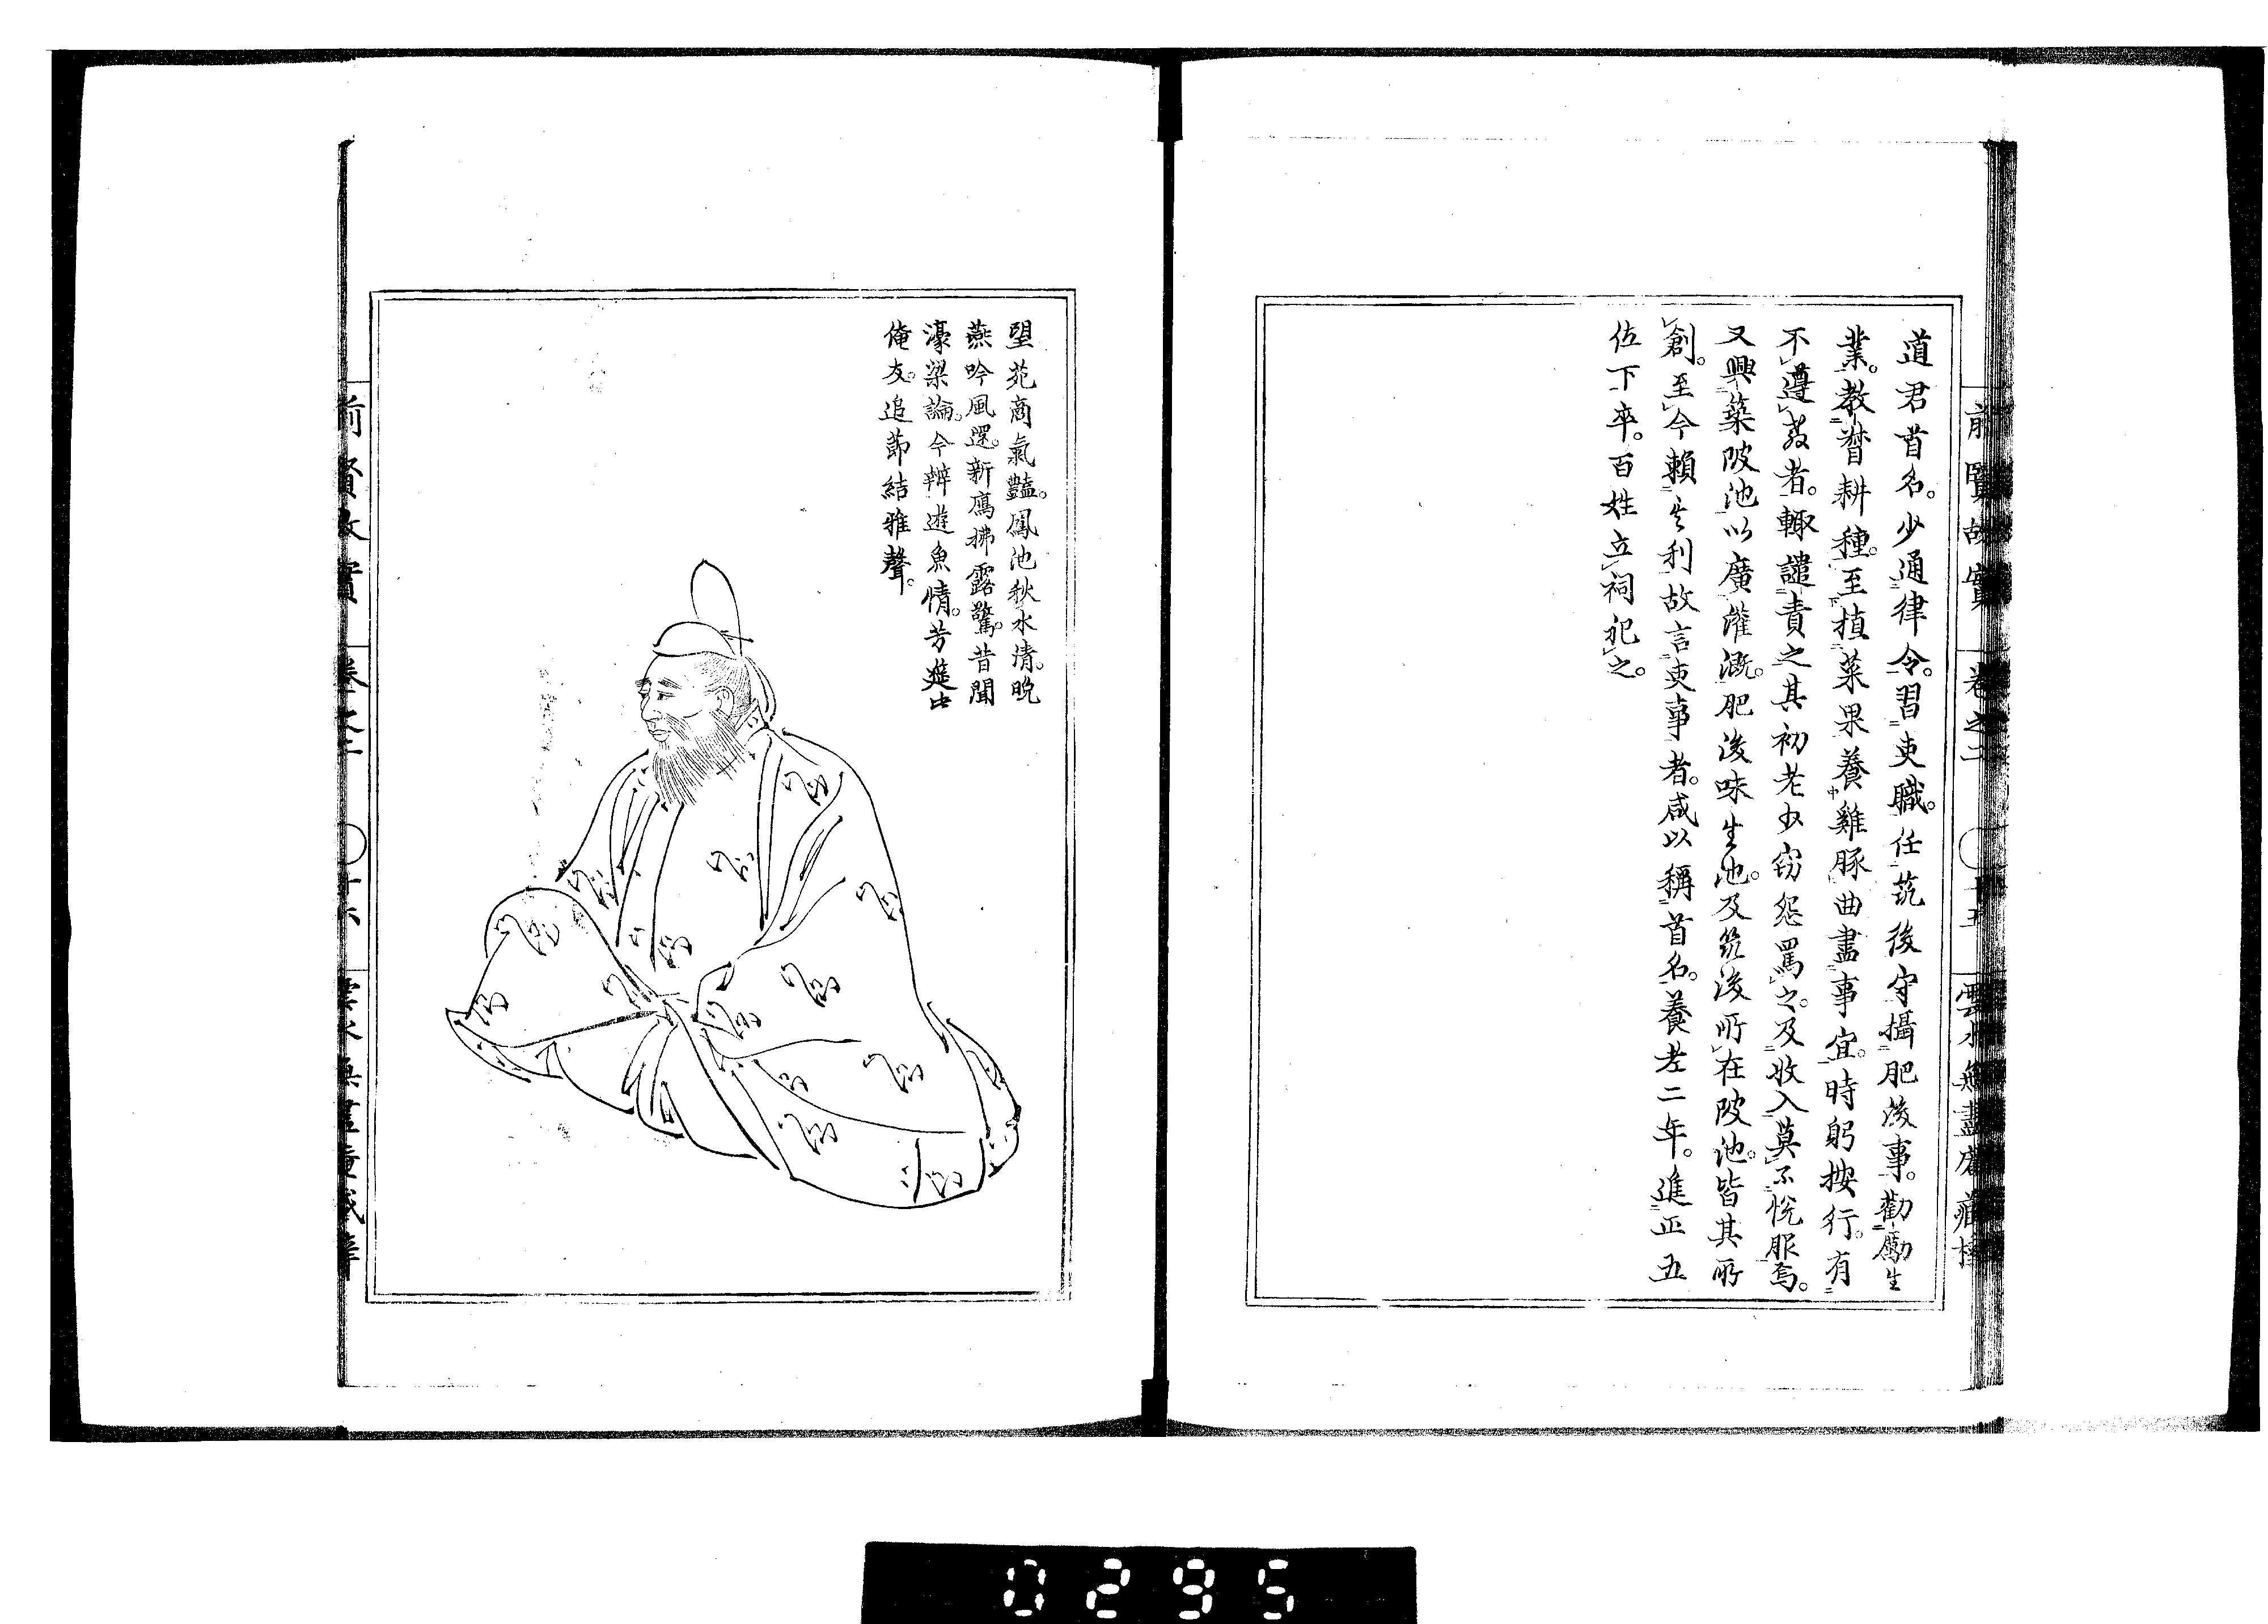 道君首名。少通律令。習吏職。任筑後守攝肥後事。勸勵生
業。教督耕種。至植菜果養雞豚曲盡事宜。時躬按行。有
不遵教者。輙譴責之其初老少窃怨罵之。及收入莫不悅服焉。
又興築陂池以廣灌漑。肥後味生池。及筑後所在陂池。皆其所
創。至今賴其利故言吏事者。咸以稱首名。養老二年。進正五
佐下卒。百姓立祠祀之。
前賢故實 卷之二 十五 雲水無盡庵藏梓
望苑商氣豔。鳳池秋水清。晩
燕吟風還。新鴈拂露驚。昔聞
濠梁論。今辨遊魚情。芳筵中
俺友。追節結雅聲。
前賢故實 卷之二 十六
0295